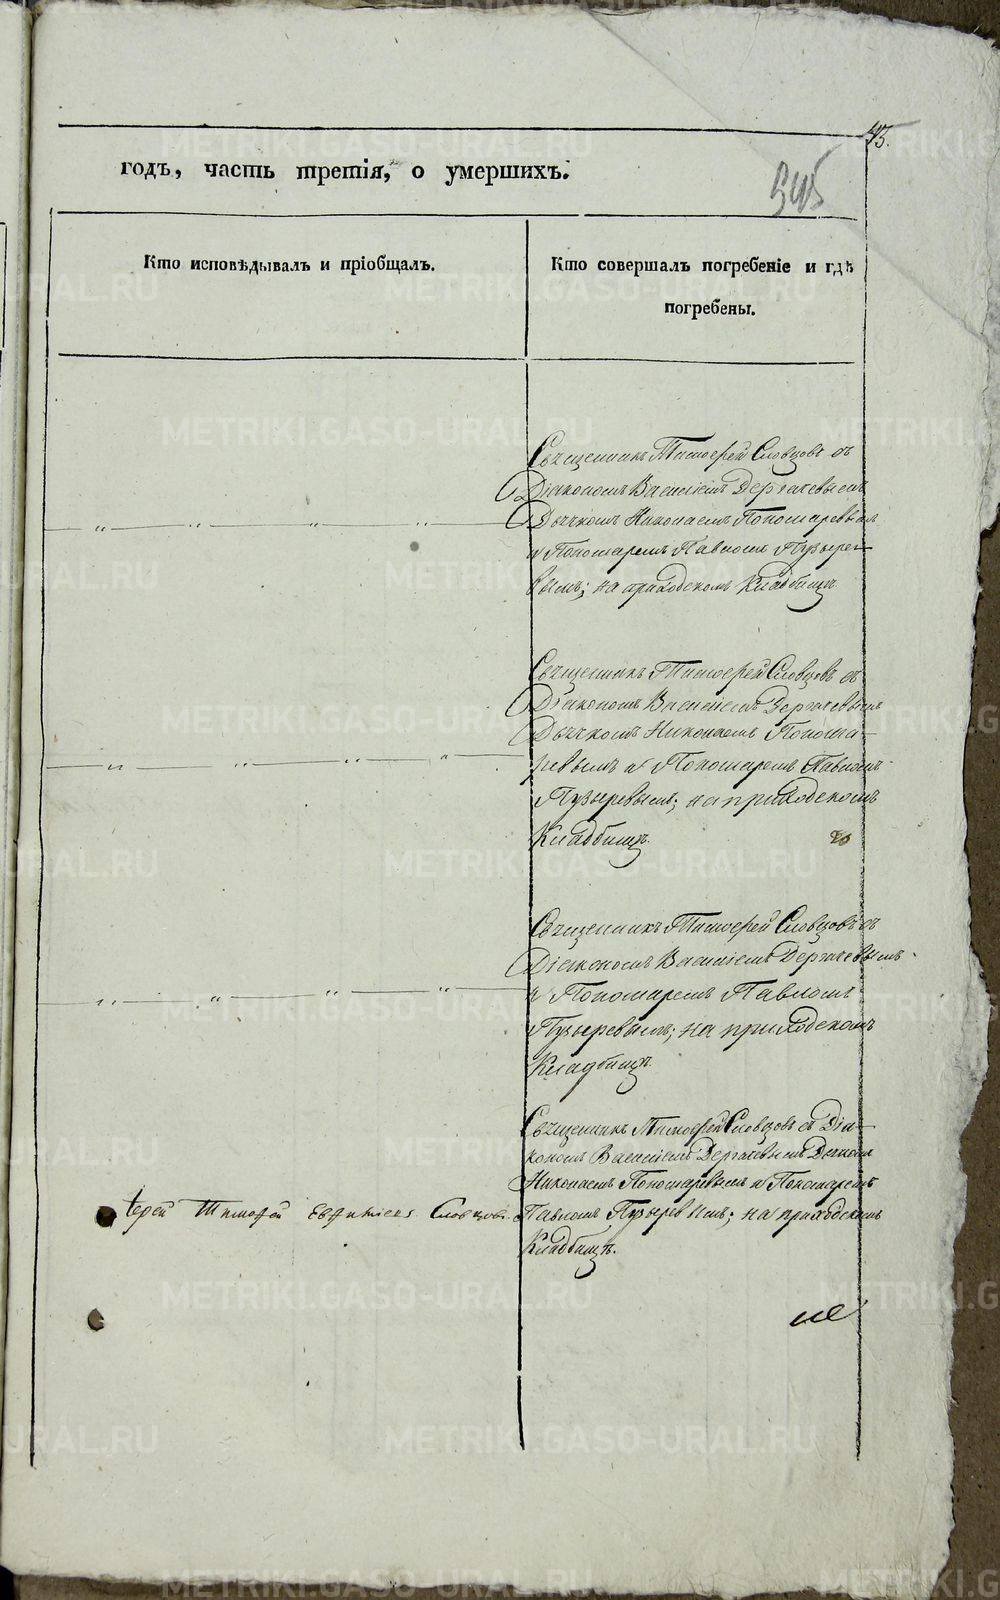 43.
545
годъ, часть третія, о умершихъ.
Кто исповѣдывалъ и пріобщалъ.
Кто совершалъ погребеніе и гдѣ
погребены.
Священникъ Тимофей Словцовъ съ
Діакономъ Василіемъ Дергачевымъ
Дьячкомъ Николаемъ Пономаревымъ
и Пономаремъ Павломъ Пузыре-
вымъ; на приходскомъ Кладбищѣ
Священникъ Тимофей Словцовъ съ
Діакономъ Василіемъ Дергачевымъ
Дьячкомъ Николаемъ Понома-
ревымъ и Пономаремъ Павломъ
Пузыревымъ; на приходскомъ
Кладбищѣ.
Священникъ Тимофей Словцовъ съ
Діакономъ Василіемъ Дергачевымъ
и Пономаремъ Павломъ
Пузыревымъ; на приходскомъ
Кладбищѣ.
Священникъ Тимофей Словцовъ съ Діа-
кономъ Василіемъ Дергачевымъ Дьячкомъ
Николаемъ Пономаревымъ и Пономаремъ
Іерей Тимофей Евфиміевъ Словцовъ.
Павломъ Пузыревымъ; на приходскомъ
Кладбищѣ.
METRIKI.GASO-URAL.RU